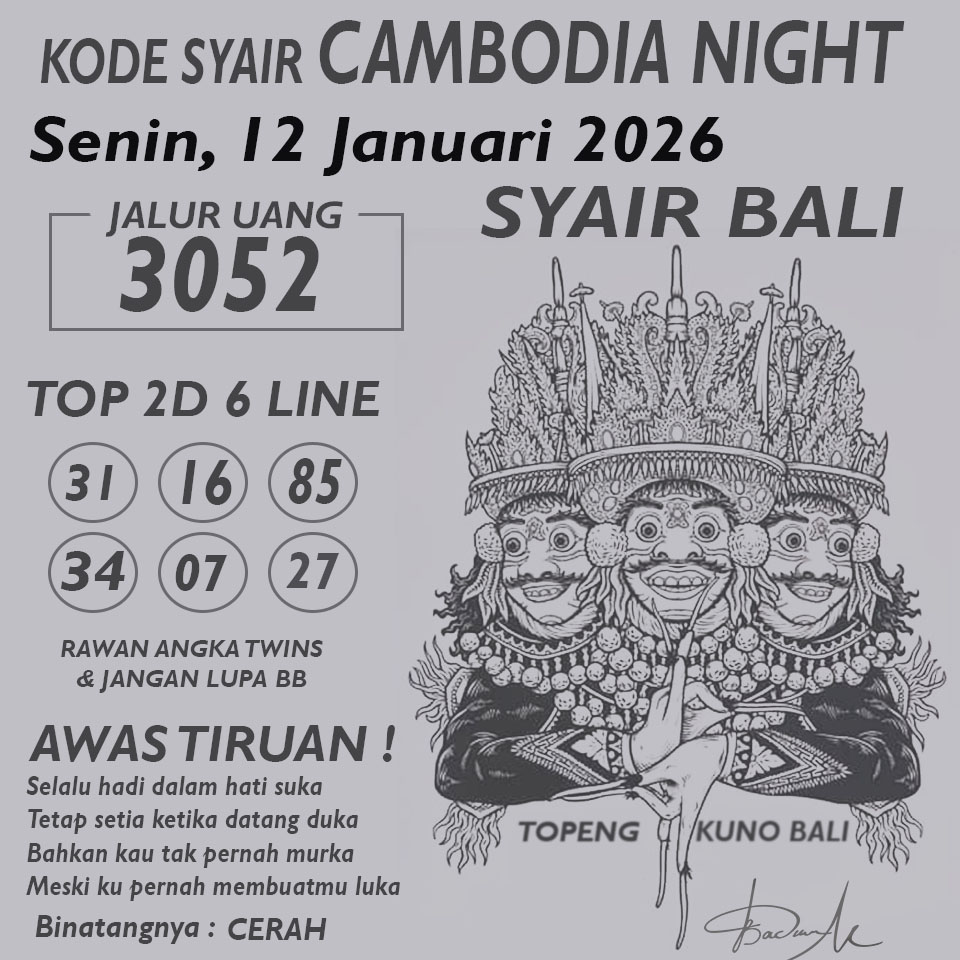 KODE SYAIR CAMBODIA NIGHT
Senin, 12 Januari 2026
SYAIR BALI
JALUR UANG
3052
TOP 2D 6 LINE
31 16 85
34 07 27
RAWAN ANGKA TWINS
& JANGAN LUPA BB
AWAS TIRUAN !
Selalu hadi dalam hati suka
Tetap setia ketika datang duka
Bahkan kau tak pernah murka
Meski ku pernah membuatmu luka
Binatangnya : CERAH
TOPENG KUNO BALI